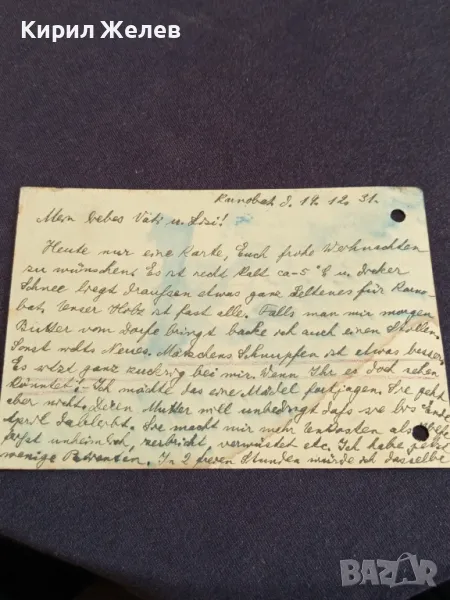 Кирил Желев
Karnobat d. 19. 12. 31.
Mein liebes Vati u. Lisi!
Heute nur eine Karte, Euch frohe Weihnachten
zu wünschen. Es ist recht kalt ca -5° C u. dicker
Schnee liegt draußen etwas ganz Seltenes für Karno-
bat. Unser Holz ist fast alle. Falls man mir morgen
Butter vom Dorfe bringt backe ich auch einen Stollen.
Sonst nichts Neues. Mätschens Schnupfen ist etwas besser.
Es ist ganz bei mir. Wenn Ihr es doch sehen
könntet! Ich möchte das eine Mädel fortjagen. Sie geht
aber nicht. Deren Mutter will unbedingt dafs sie bis Ende
April dableibt. Sie macht mir mehr Unkosten als
unheimlich, zerbricht, verwüstet etc. Ich habe jetzt
wenige Patienten. In 2 freien Stunden würde ich dasselbe
BAZAR.bg